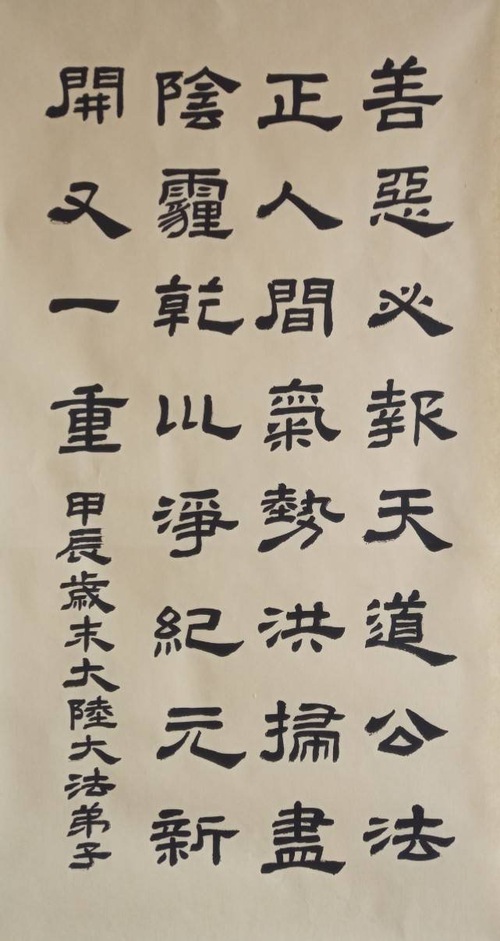 善惡必報天道公法
正人間氣勢洪掃盡
陰霾乾坤淨紀元新
開又一重
甲辰歲末大陸大法弟子